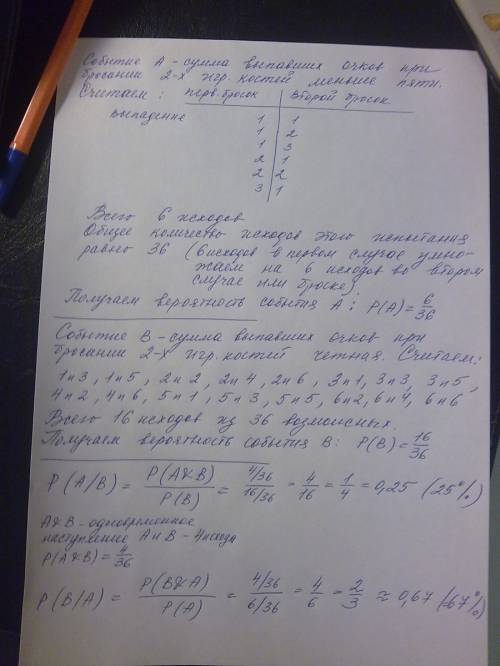 Событие А - сумма выпавших очков при
бросании 2-х игр. костей меньше пяти.
Считаем: перв. бросок | второй бросок
Выпадение 1 | 1
1 | 2
1 | 3
2 | 1
2 | 2
3 | 1
Всего 6 исходов
Общее количество исходов этого испытания
равно 36 (6 исходов в первом случае умно-
жаем на 6 исходов во втором
случае или броске)
Получаем вероятность события А: P(A)=6/36
Событие В - сумма выпавших очков при
бросании 2-х игр. костей четная. Считаем:
1и3, 1и5, 2и2, 2и4, 2и6, 3и1, 3и3, 3и5,
4и2, 4и6, 5и1, 5и3, 5и5, 6и2, 6и4, 6и6
Всего 16 исходов из 36 возможных.
Получаем вероятность события В: P(B)=16/36
P(A/B) = P(A&B)/P(B) = (4/36)/(16/36) = 4/16 = 1/4 = 0,25 (25%)
A&B - одновременное
наступление А и В - 4 исхода
P(A&B)=4/36
P(B/A) = P(B&A)/P(A) = (4/36)/(6/36) = 4/6 = 2/3 ≈ 0,67 (67%)